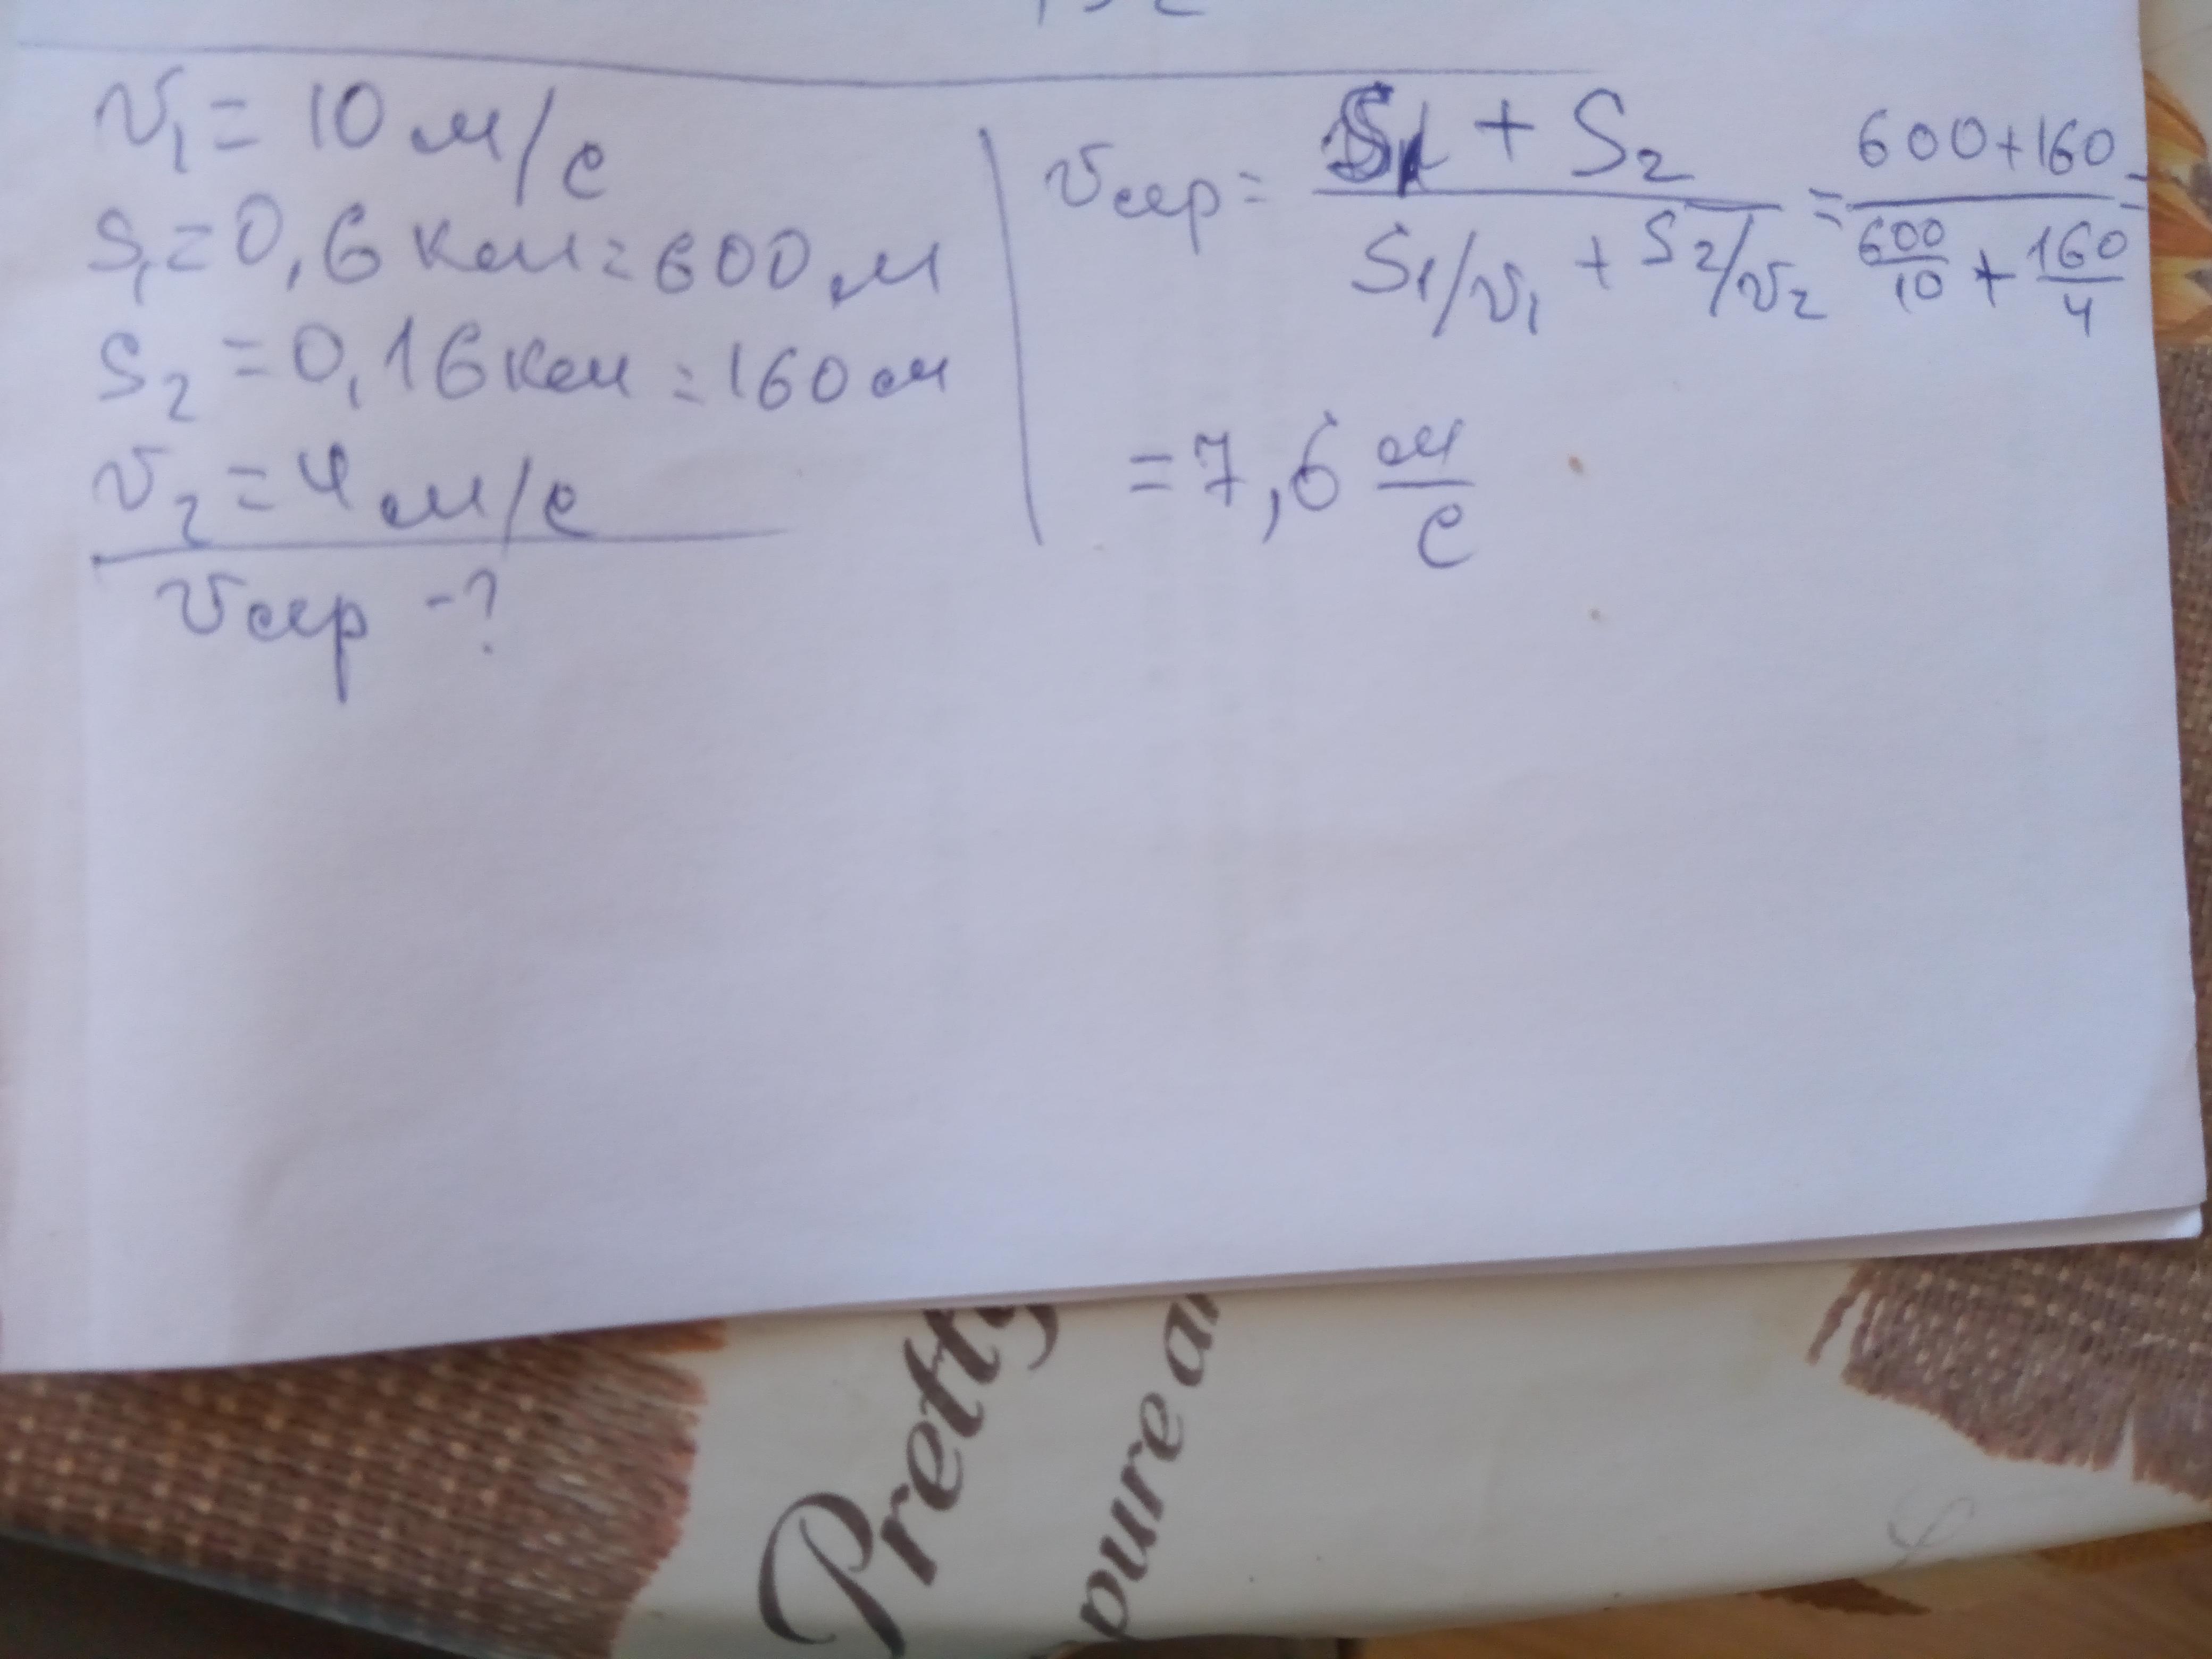 v₁ = 10 м/с
S₁ = 0,6 км = 600 м
S₂ = 0,16 км = 160 м
v₂ = 4 м/с
vср - ?
vср = (S₁ + S₂) / (S₁/v₁ + S₂/v₂) = (600+160) / (600/10 + 160/4) =
= 7,6 м/с
Pretty
pure